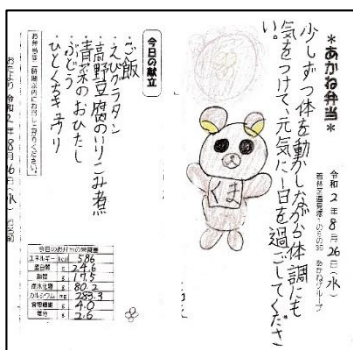 *あかね弁当*
令和2年8月26日(水)
少しずつ体を動かしながら体調にも
気をつけて、元気に1日を過ごしてくださ
い。
くま
今日の献立
ご飯
えびグラタン
高野豆腐のふくみ煮
青菜のおひたし
ぶどう
ひとくちゼリー
今日のお弁当の栄養量
エネルギー kcal 586
蛋白質 g 24.6
脂質 g 17.5
炭水化物 g 80.2
カルシウム mg 283.3
食物繊維 g 4.0
塩分 g 2.6
令和2年8月26日(水)